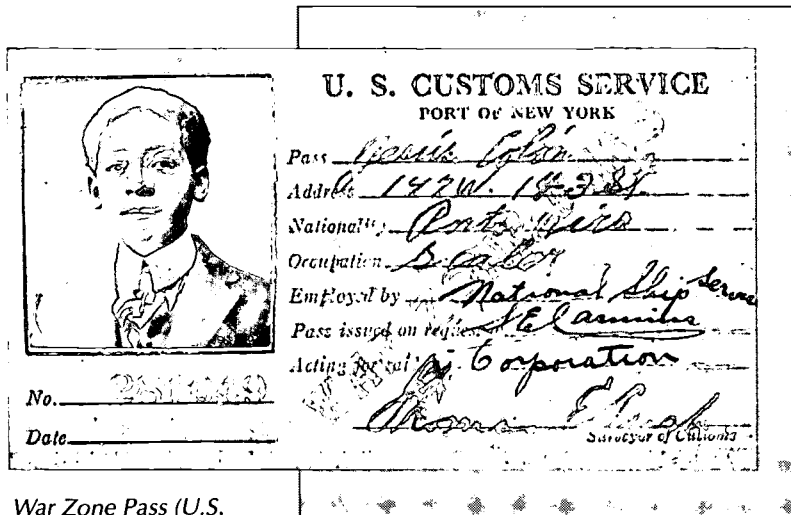 U. S. CUSTOMS SERVICE
PORT OF NEW YORK
Pass Jesús Colón
Address 142 W. 143 St.
Nationality Porto Rico
Occupation
Employed by National Ship Service
Pass issued on request
Acting for Corporation
No.
Date
Surveyor of Customs
War Zone Pass (U.S.